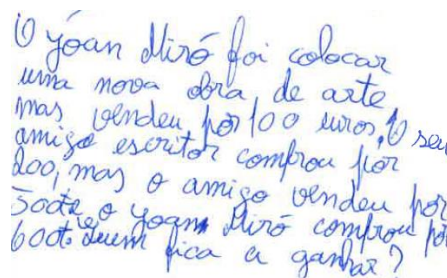 O yoan Miró foi colocar
uma nova obra de arte
mas vendeu por 100 euros. O seu
amigo escritor comprou por
200, mas o amigo vendeu por
500€ e o yoan Miró comprou por
600€. Quem fica a ganhar?